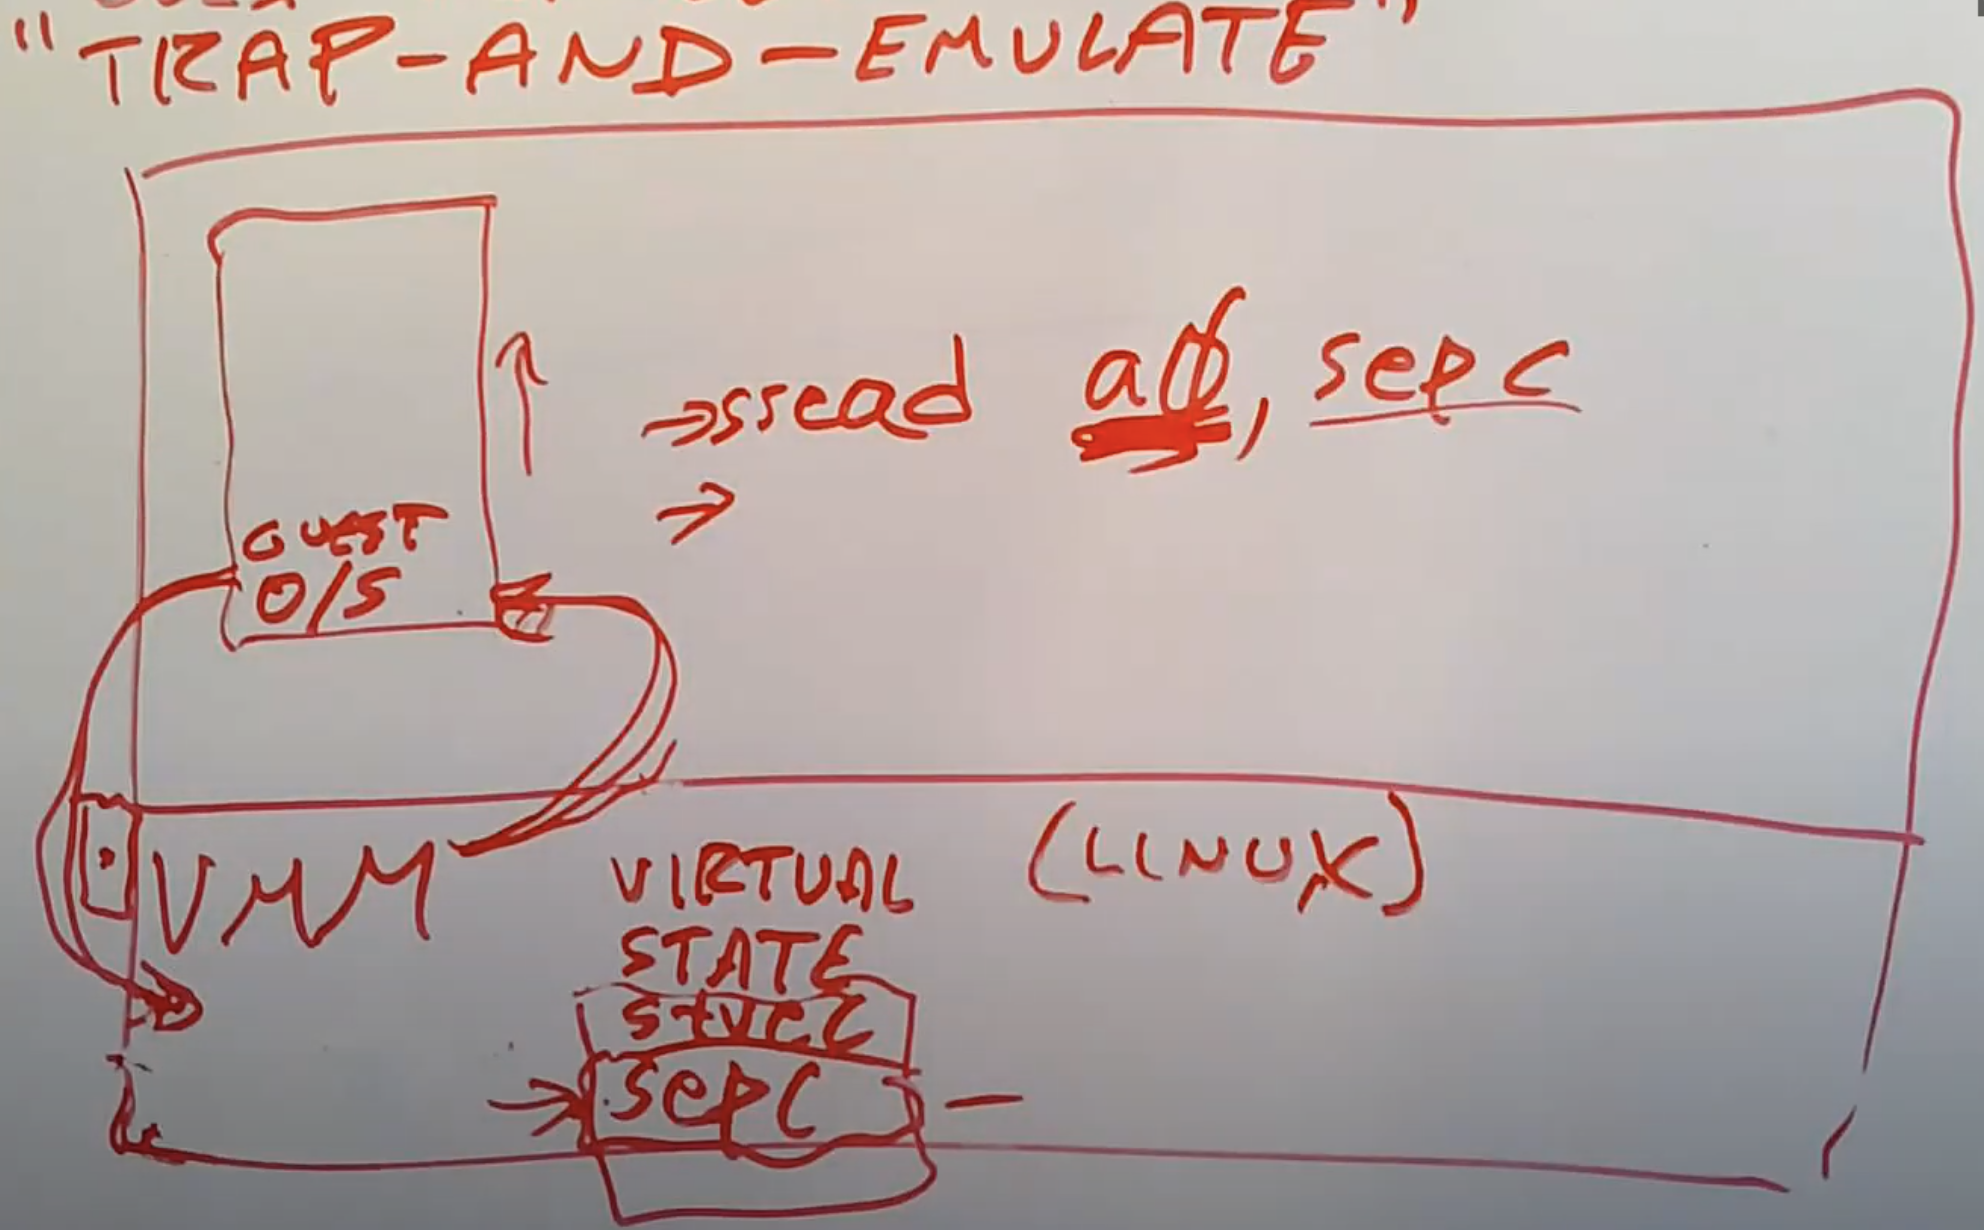 "TRAP-AND-EMULATE"
→ssead a0, sepc
→
GUEST
O/S
VMM
VIRTUAL
STATE
(LINUX)
stvec
sepc